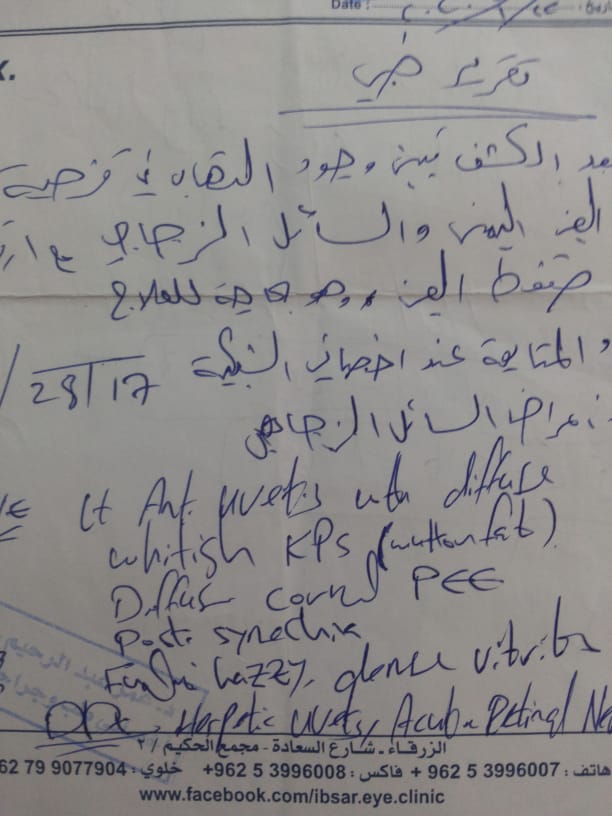 Date :
تقرير طبي
بعد الكشف تبين وجود التهاب في قزحية
العين اليمنى والسائل الزجاجي مع
ضغط العين وهو بحاجة للعلاج
و المتابعة عند اخصائي الشبكية 28/17
امراض السائل الزجاجي
Ant. uveitis with diffuse
whitish KPs (mutton fat)
Diffuse corneal PEE
Post. synechia
hazzy, dense vitritis
DDx, Herpetic uveitis, Acute Retinal Ne
الزرقاء - شارع السعادة - مجمع الحكيم / ٢
هاتف : 3996007 5 962 + فاكس : 3996008 5 962+ خلوي : 9077904 79 62
www.facebook.com/ibsar.eye.clinic